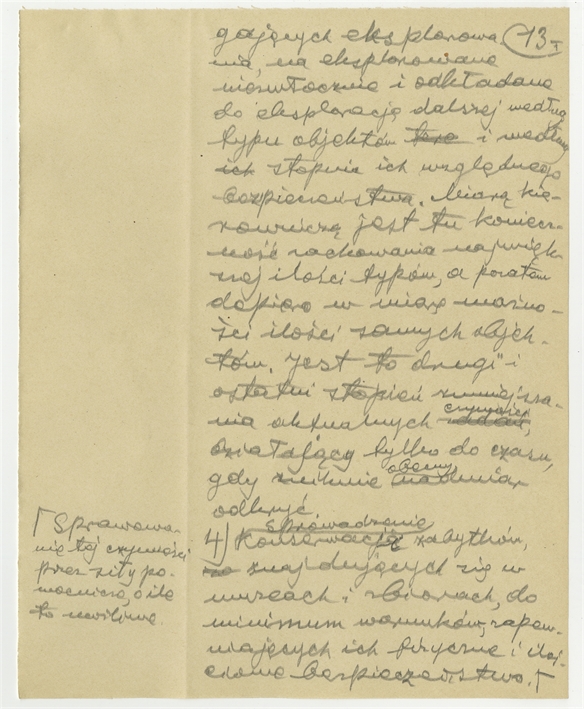 13
gających eksplorowa-
nia, na eksplorowane
niezwłocznie i odkładane
do eksploracji dalszej według
typu objektów i według
ich stopnia ich względnego
bezpieczeństwa. Miarą kie-
rowniczą jest tu koniecz-
ność zachowania najwięk-
szej ilości typów, a poza tem
dopiero w miarę możno-
ści ilości samych objek-
tów. Jest to drugi i
ostatni stopień zmniejsza-
nia aktualnych czynności,
działający tylko do czasu,
gdy zniknie obecny nadmiar
odkryć.
4) Konserwację Sprowadzenie zabytków,
znajdujących się w
muzeach i zbiorach, do
minimum warunków, zapew-
niających ich fizyczne i iloś-
ciowe bezpieczeństwo. Γ
Γ Sprawowa-
nie tej czynności
przez siły po-
mocnicze, o ile
to możliwe